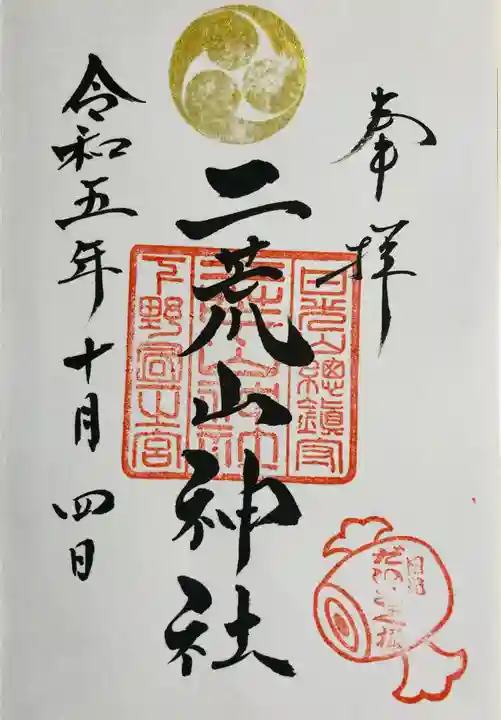 奉拝
日光山總鎮守
二荒山神社
二荒山神社
下野國一之宮
令和五年十月四日